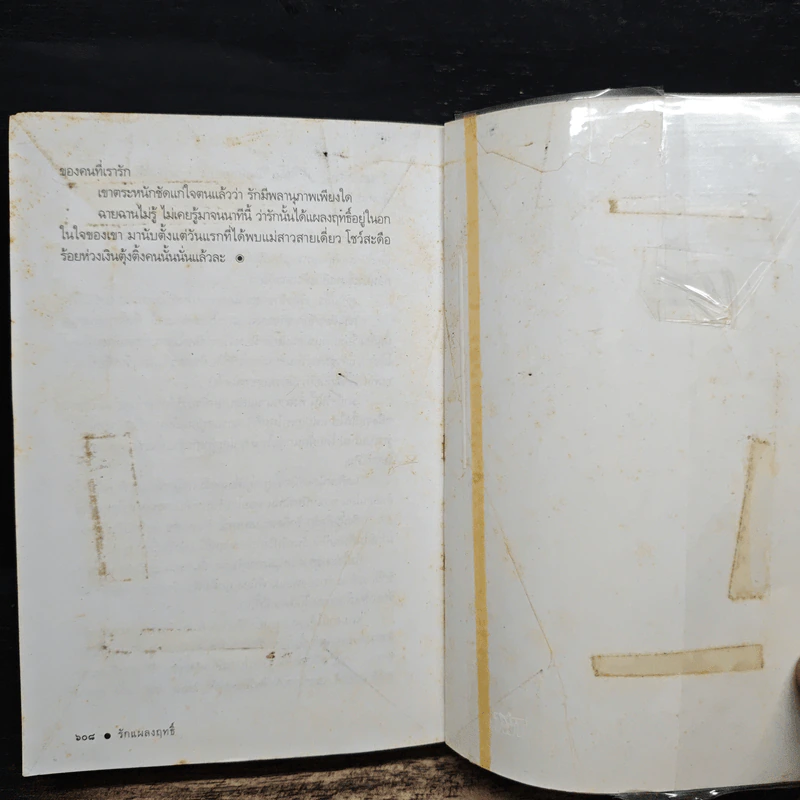 ของคนที่เรารัก
เขาตระหนักชัดแก่ใจตนแล้วว่า รักมีพลานุภาพเพียงใด
ฉายฉานไม่รู้ ไม่เคยรู้มาจนนาทีนี้ ว่ารักนั้นได้แผลงฤทธิ์อยู่ในอก
ในใจของเขา มานับตั้งแต่วันแรกที่ได้พบแม่สาวสายเดี่ยว โชว์สะดือ
ร้อยห่วงเงินตุ้งติ้งคนนั้นนั่นแล้วละ ◉
๖๐๘ ● รักแผลงฤทธิ์